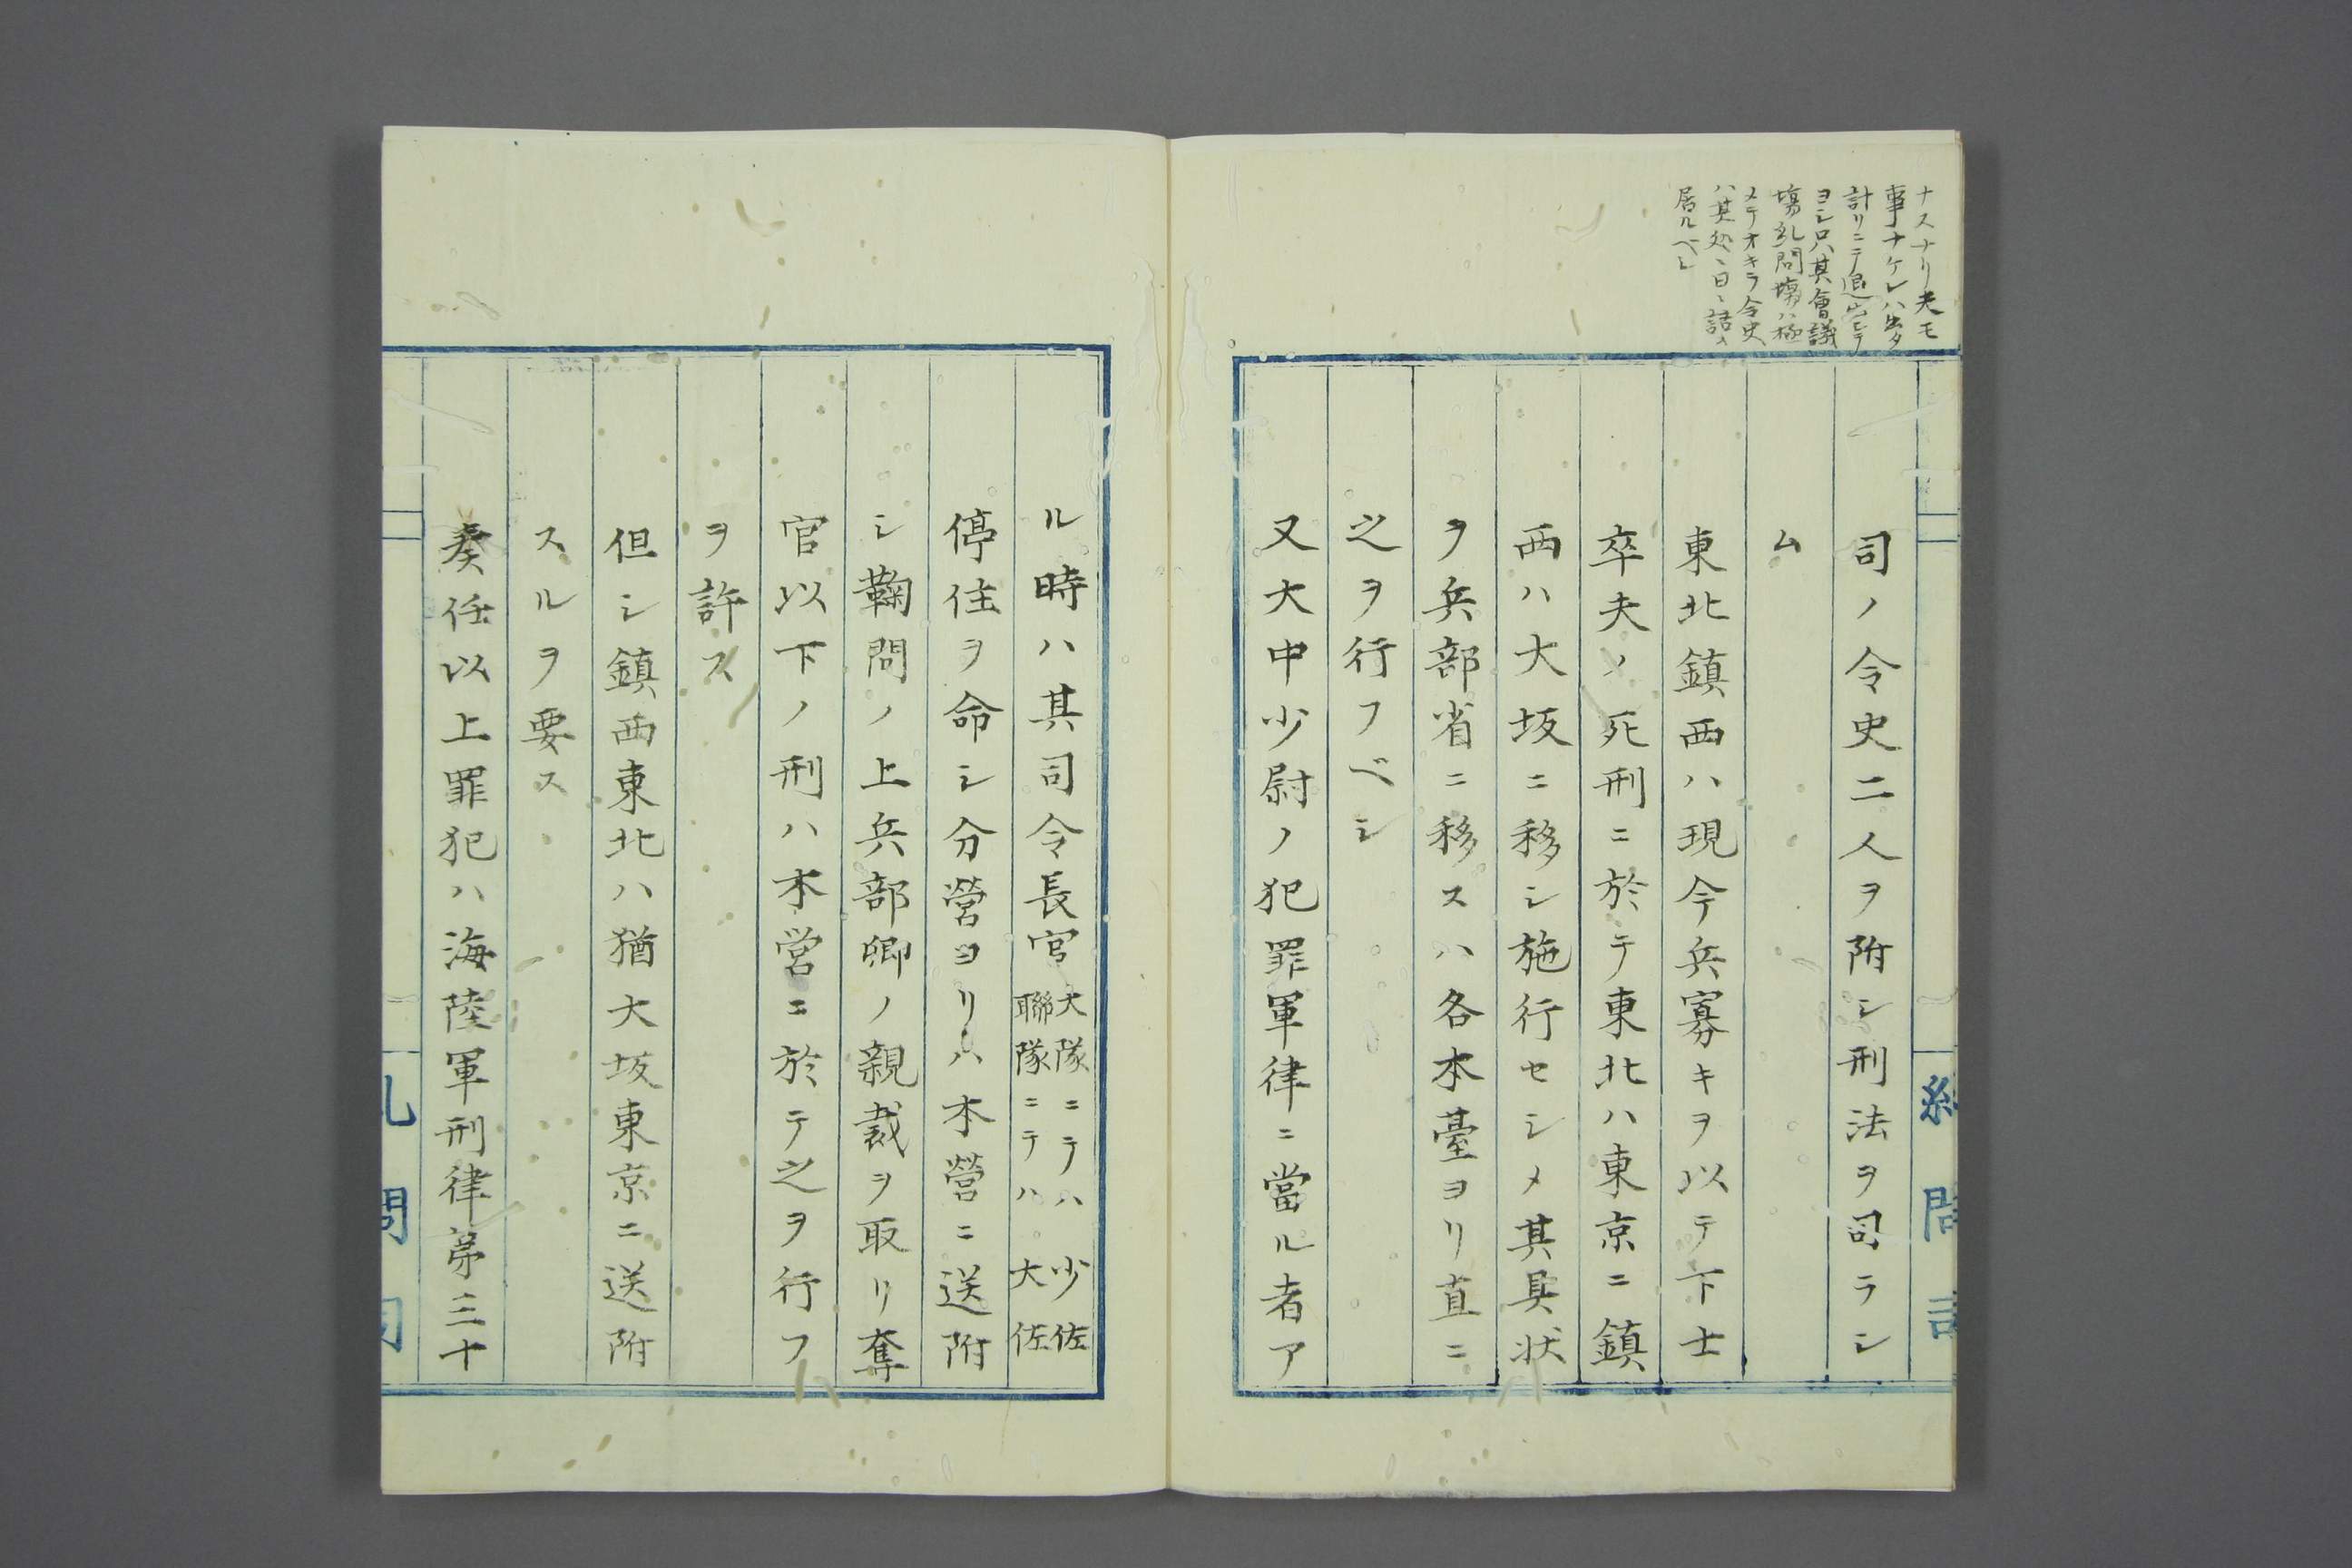 ナスナリ夫モ
事ナケレハ出タ
計リニテ退出シテ
ヨシ只ハ其會議
塲糺問塲ハ極
メテオキテ令史
ハ其処ニ日々詰メ
居ルベシ
糺問司
司ノ令史二人ヲ附シ刑法ヲ司ラシ
ム
東北鎮西ハ現今兵寡キヲ以テ下士
卒夫ノ死刑ニ於テ東北ハ東京ニ鎮
西ハ大坂ニ移シ施行セシメ其具状
ヲ兵部省ニ移スハ各本臺ヨリ直ニ
之ヲ行フベシ
又大中少尉ノ犯罪軍律ニ當ル者ア
ル時ハ其司令長官大隊ニテハ少佐聯隊ニテハ大佐
停住ヲ命シ分營ヨリハ本營ニ送附
シ鞠問ノ上兵部卿ノ親裁ヲ取リ奪
官以下ノ刑ハ本営ニ於テ之ヲ行フ
ヲ許ス
但シ鎮西東北ハ猶大坂東京ニ送附
スルヲ要ス
奏任以上罪犯ハ海陸軍刑律第三十
糺問司